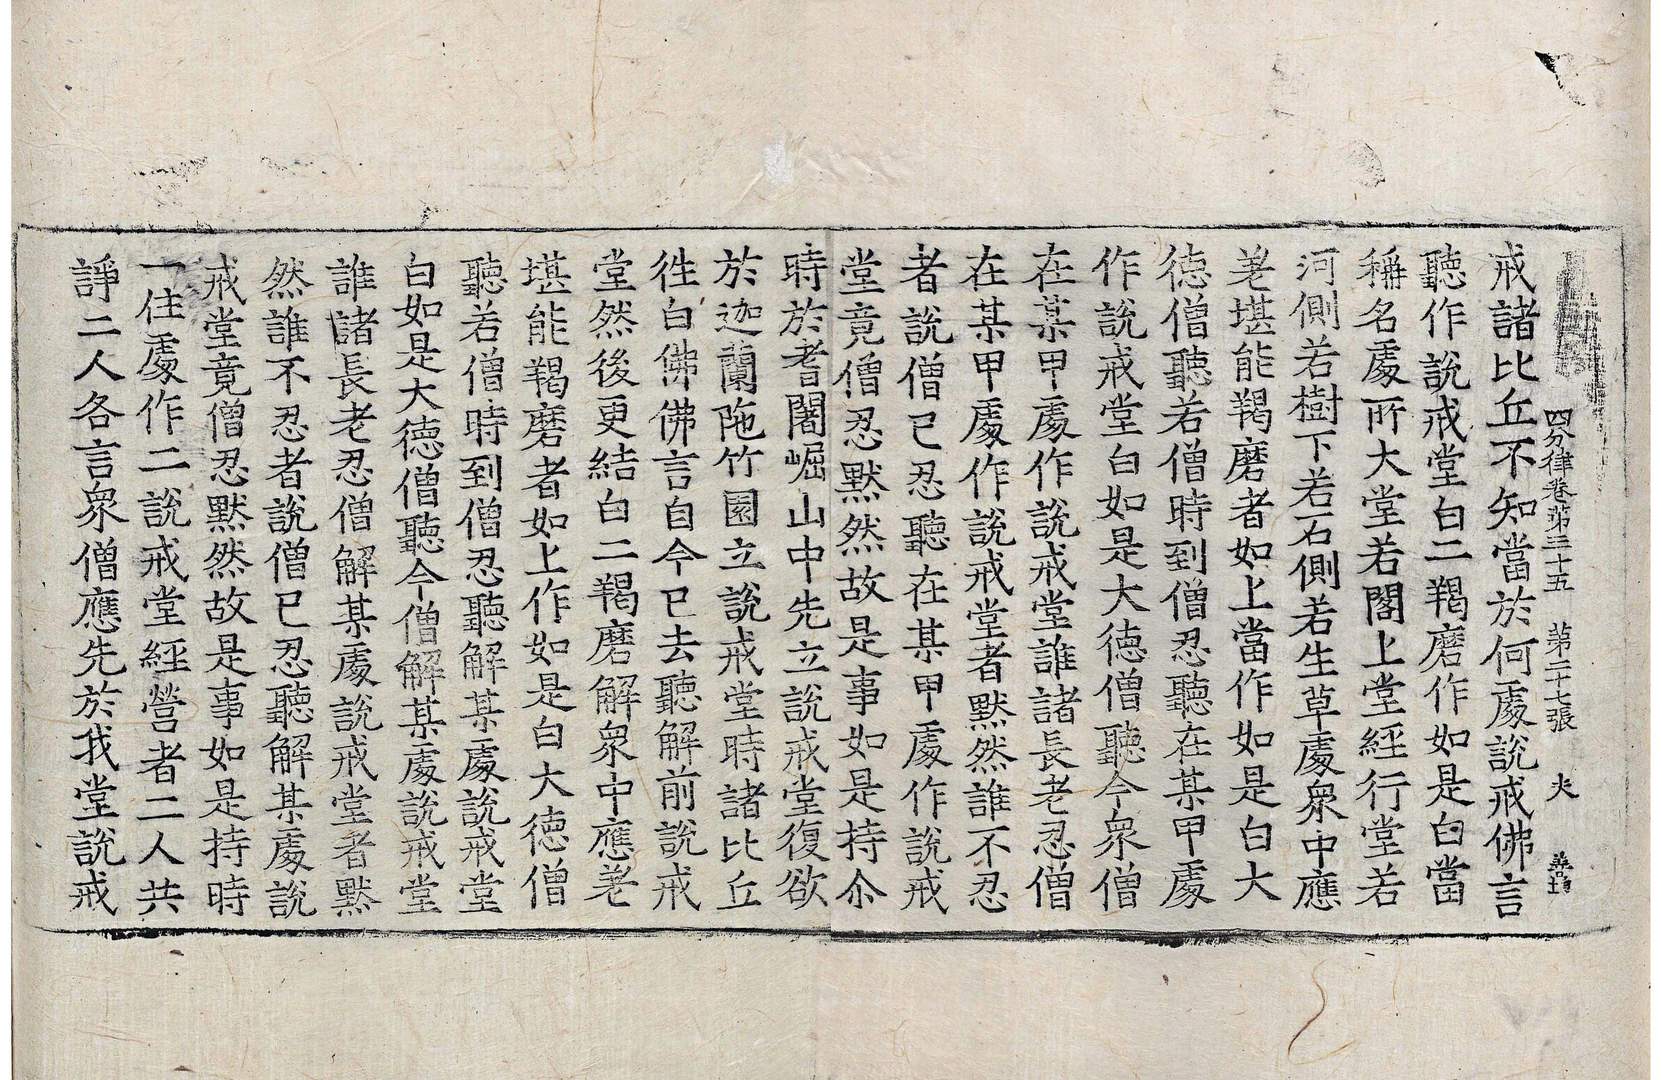 四分律卷第三十五　第二十七張　夫
戒諸比丘不知當於何處說戒佛言
聽作說戒堂白二羯磨作如是白當
稱名處所大堂若閣上堂經行堂若
河側若樹下若石側若生草處衆中應
差堪能羯磨者如上當作如是白大
德僧聽若僧時到僧忍聽在某甲處
作說戒堂白如是大德僧聽今衆僧
在某甲處作說戒堂誰諸長老忍僧
在某甲處作說戒堂者默然誰不忍
者說僧已忍聽在某甲處作說戒
堂竟僧忍默然故是事如是持尒
時於耆闍崛山中先立說戒堂復欲
於迦蘭陁竹園立說戒堂時諸比丘
徃白佛佛言自今已去聽解前說戒
堂然後更結白二羯磨解衆中應差
堪能羯磨者如上作如是白大德僧
聽若僧時到僧忍聽解某處說戒堂
白如是大德僧聽今僧解某處說戒堂
誰諸長老忍僧解某處說戒堂者默
然誰不忍者說僧已忍聽解某處說
戒堂竟僧忍默然故是事如是持時
一住處作二說戒堂經營者二人共
諍二人各言衆僧應先於我堂說戒